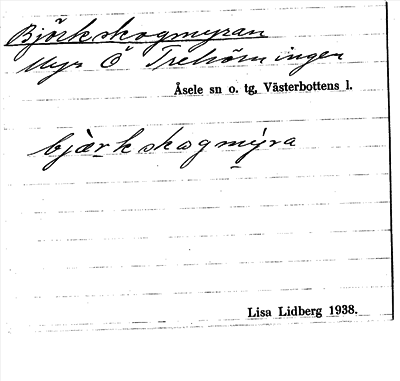 Björkskogmyran
Myr Ö Trehörningen
Åsele sn o. tg, Västerbottens l.
bjærkskogmýra
Lisa Lidberg 1938.